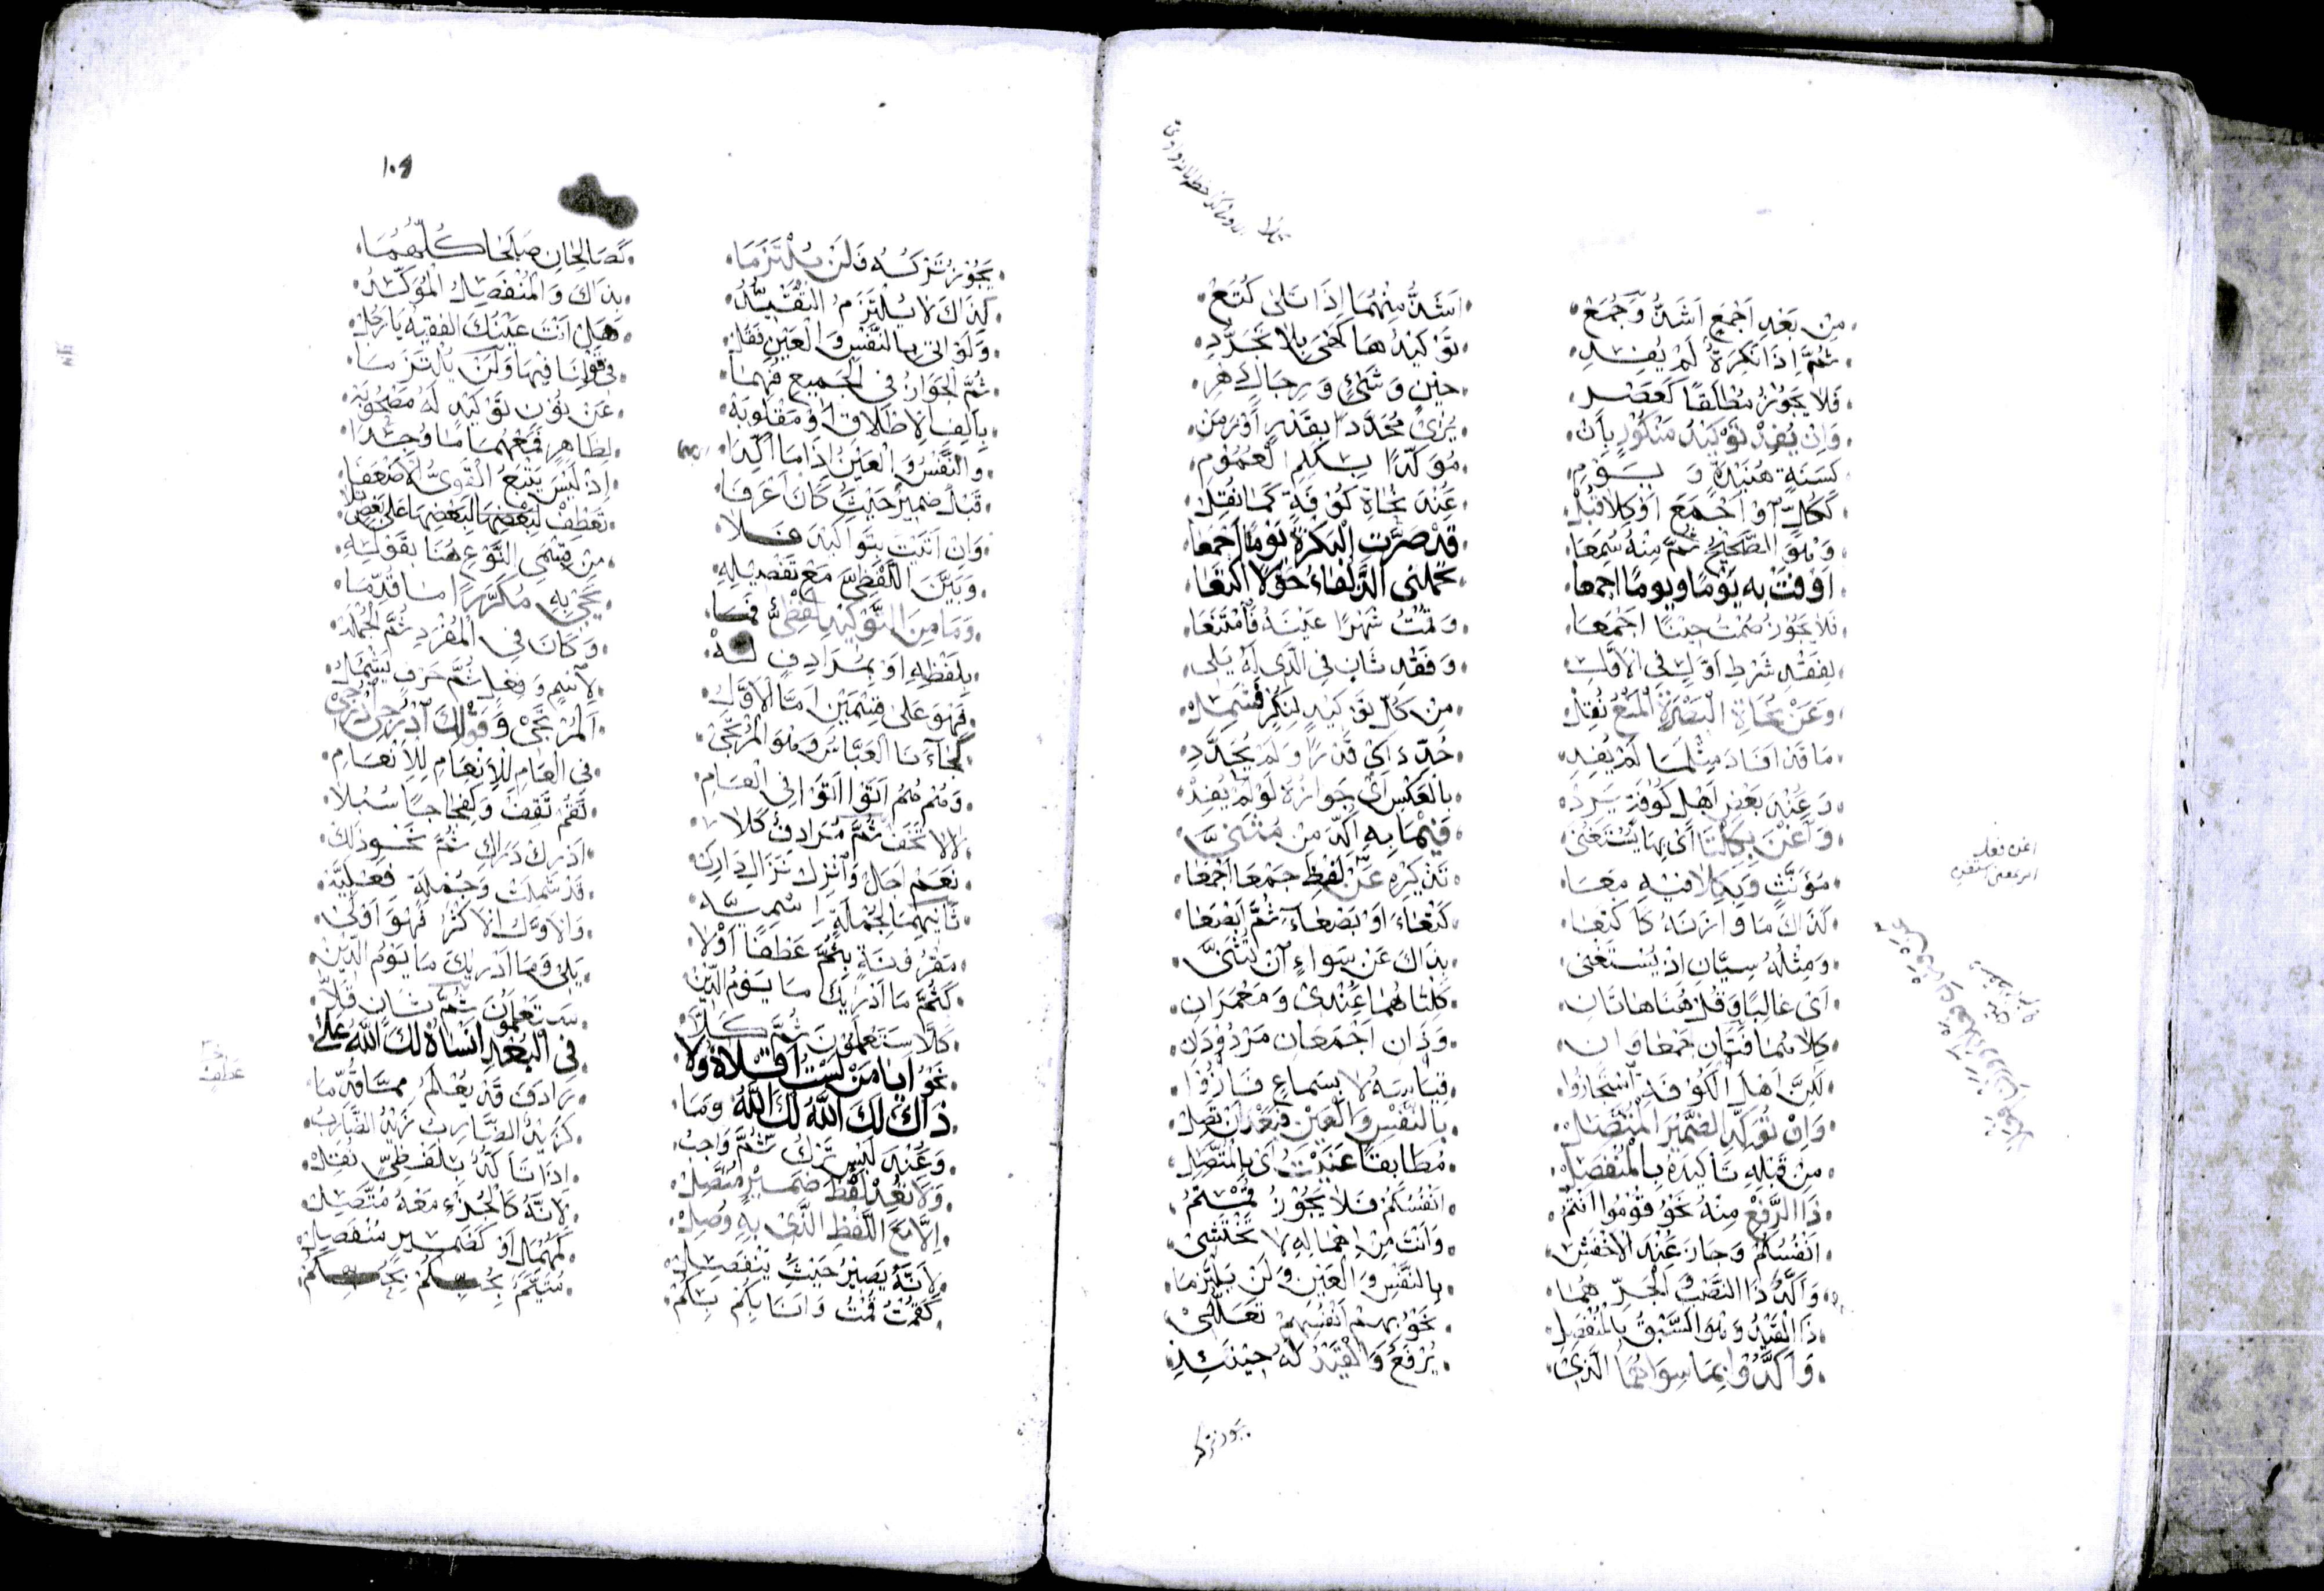 من بعد اجمع اشذ وجمع اشذ منهما اذا تلى كتع
ثم اذا نكرة لم يفد توكيدها كفى بلا تحدد
فلا يجوز مطلقا كعصر حين وشئ ورجال دهر
وان يفد توكيد منكور بان يرى محددا بقدر او زمن
كسنة هنيدة و يوم موكدا بكلم العموم
ككل او اجمع او كلا قبل عند نحاة كوفة كما نقل
وهو الصحيح ثم منه سمعا قد صرت البكرة يوما اجمعا
اوفت به يوما ويوما اجمعا تحملنى الذلفاء حولا اكتعا
فلا يجوز صمت حينا اجمعا وقمت شهرا عينه فامتنعا
لفقد شرط اول فى الاول وفقد ثان فى الذى له يلى
وعن نحاة البصرة المنع نقل من كل توكيد لنكر فشمل
ما قد افاد مثلما لم يفد حدد اى قدرا ولم يحدد
وعند بعض اهل كوفة يرد بالعكس اى جوازه لو لم يفد
واغن بكلتا اى بها يستغنى فيما به اكد من مثنى
مؤنث وبكلا فيه معا تذكيره عن لفظ جمعا اجمعا
كذاك ما وازنه كاكتعا كتعاء او بصعاء ثم ابصعا
ومثله سيان اذ يستغنى بذاك عن سواء ان تثنى
اى غالبا وقل هنا هاتان كلتاهما عندى ومعمران
كلاهما فتان جمعاوان وذان اجمعان مردودان
لكن اهل الكوفة استجازوا قياسه لا بسماع فازوا
وان توكد الضمير المتصل بالنفس والعين فبعد ان تصل
من قبله تاكيده بالمنفصل مطابقا عنيت اى بالمتصل
ذا الرفع منه نحو قوموا انتم انفسكم فلا يجوز قمتم
انفسكم وجاز عند الاخفش وانت من اهماله لا تختشى
واكد ذا النصب والجر هما بالنفس والعين ولن يلتزما
ذا القيد وهو السبق بالمنفصل نحو بهم انفسهم تعللى
واكدوا بما سواهما الذى يرفع والقيد له حينئذ
يجوز تركه فلن يلتزما كصالحان صلحا كلهما
كذاك لا يلتزم التقيد بذاك والمنفصل المؤكد
ولو اتى بالنفس والعين فقل هل انت عينك الفقيه يا رجل
ثم الجواز فى الجميع فهما فى قولنا فيها ولن يلتزما
بالف الاطلاق او مقلوبة عن نون توكيد له مصحوبة
والنفس والعين اذا ما اكدا لظاهر فمعهما ما وجدا
قبل ضمير حيث كان اعرفا اذ ليس يتبع القوى الاضعفا
وان اتيت بتواكيد فلا تعطف لبعضها على بعض تلا
وبين اللفظى مع تفصيله من قسمى النوع هنا بقوله
وما من التوكيد لفظى فما يجى به مكررا اما قدما
بلفظه او بمرادف له وكان فى المفرد ثم الجملة
فهو على قسمين اما الاول لاسم وفعل ثم حرف يشمل
كجاءنا العباس وهو المرتجى المرتجى وقولك ادرجى ادرجى
وهم هم اتوا اتوا فى العام فى العام للانعام للانعام
لا لا تخف ثم مرادف كلا تقم تقف وكفجاجا سبلا
نعم اجل وانزل نزال دارك ادرك دراك ثم نحو ذلك
ثانيهما لجملة اسمية قد شملت وجملة فعلية
مقرونة بثم عطفا اولا والاول الاكثر فهو اولى
كثم ما ادريك ما يوم الدين يلى وما ادريك ما يوم الدين
كلا ستعلمون ثم كلا ستعلمون ثم ثان قلا
نحو ايا من لست اقلاه ولا فى البعد انساه لك الله على
ذاك لك الله لك الله وما ترادف قد يعلم مما قدما
وعند لبس ترك ثم واجب كزيد الضارب زيد الضارب
ولا تعد لفظ ضمير متصل اذا تاكد بلفظى نقل
الا مع اللفظ الذى به وصل لانه كالجزء معه متصل
لانه يصير حيث ينفصل كمهمل او كضمير منفصل
كقمت قمت وانا بكم بكم متيم بحبكم بحبكم